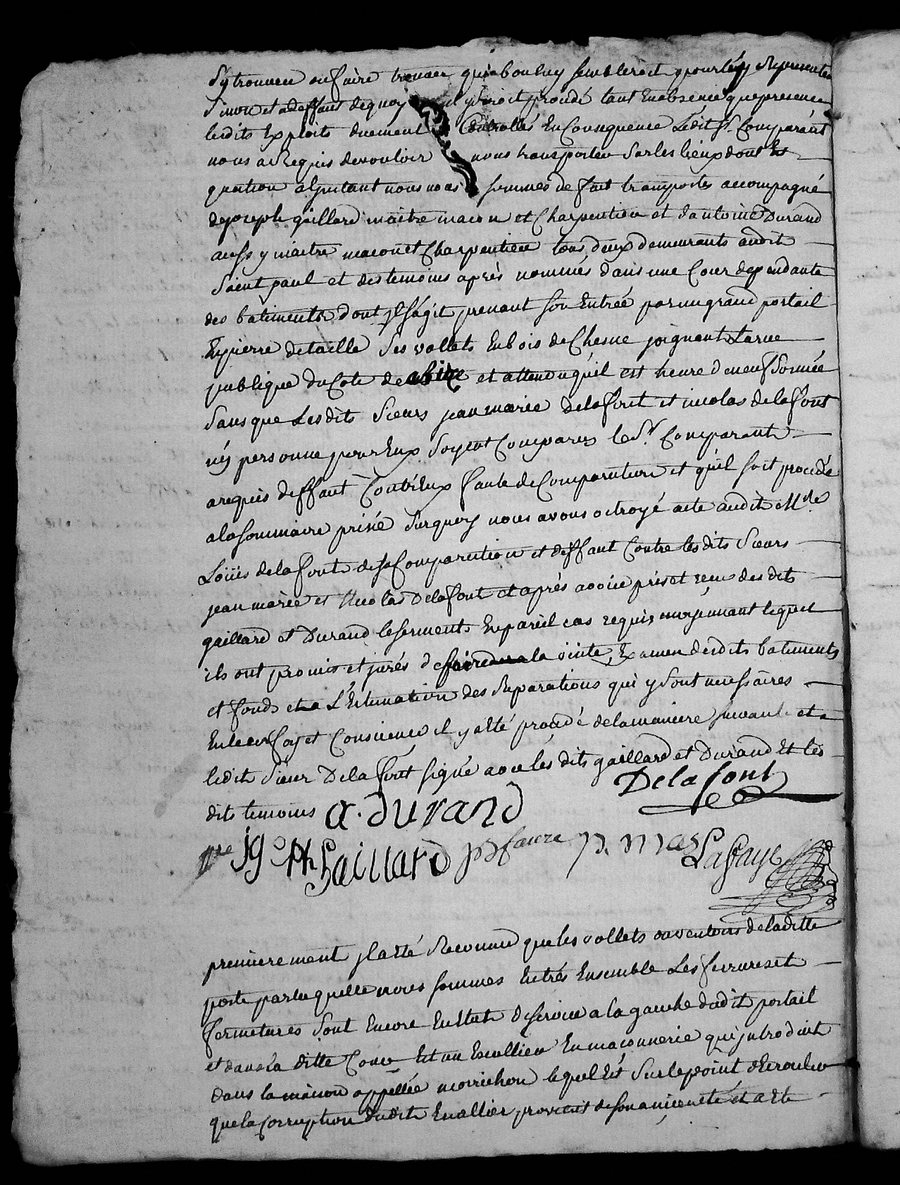 s'y trouver ou faire trouver qui bon luy sembleroit pour les y Representer
sinon et a deffaut de quoy il y seroit procédé tant En absence que presence
lesdits Exploits duement Controllés En Consequence Ledit Sr. Comparant
nous a Requis de vouloir nous transporter sur les lieux dont Est
question a l'jnstant nous nous sommes de fait transportés accompagné
de joseph gaillard maitre macon et Charpentier et d'antoine Durand
aussy maitre macon et Charpentier tous deux demeurants audit
Saint paul et des temoins après nommés dans une Cour dependante
des batiments dont jl s'agit prenant son Entrée par un grand portail
En pierre de taille Ses vollets En bois de Chesne joignant La rue
publique du Coté de bize et attendu qu'il est heure de neuf Sonnée
Sans que Lesdits Sieurs jean marie Delafont et nicolas delafont
ny personne pour Eux Soyent Comparus le Sr. Comparant
a requis deffaut Contr'Eux faute de Comparution et qu'il soit procédé
a la sommaire prisée Surquoy nous avons octroyé acte audit Mre
Loüis delafont de sa Comparution et deffaut Contre lesdits Sieurs
jean marie et Nicolas Delafont et après avoir pris et reçu des dits
gaillard et Durand le serment En pareil cas requis moyennant lequel
ils ont promis et jurés de faire la visite, Examen desdits batiments
et fonds et a L'Estimation des Reparations qui y sont nécessaires
En leur foy et Conscience il y a Eté procédé de la maniere suivante et a
ledit Sieur Delafont signé avec lés dits gaillard et Durand Et lés
dits temoins a. durand Delafont
Gaillard faure p. mas Lafaye
premierement jl a Eté Reconnu que les vollets ou ventous de laditte
porte par laquelle nous sommes Entrés Ensemble Les serrures et
fermetures Sont Encore En Etat de service a la gauche dudit portail
et dans la ditte Cour Est un Escallier En maconnerie qui jntroduit
dans la maison appellée morrichon lequel Est Sur le point d'Ecrouler
que la corruption dudit Escallier provient de son ancienneté et a Eté